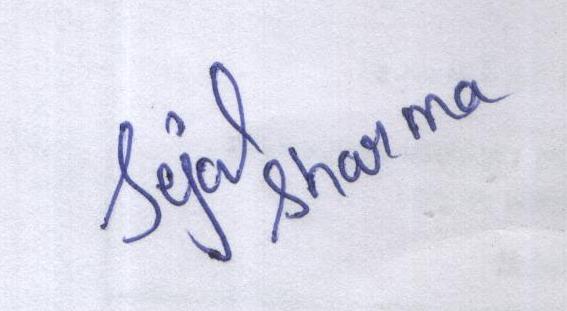 Sejal Sharma